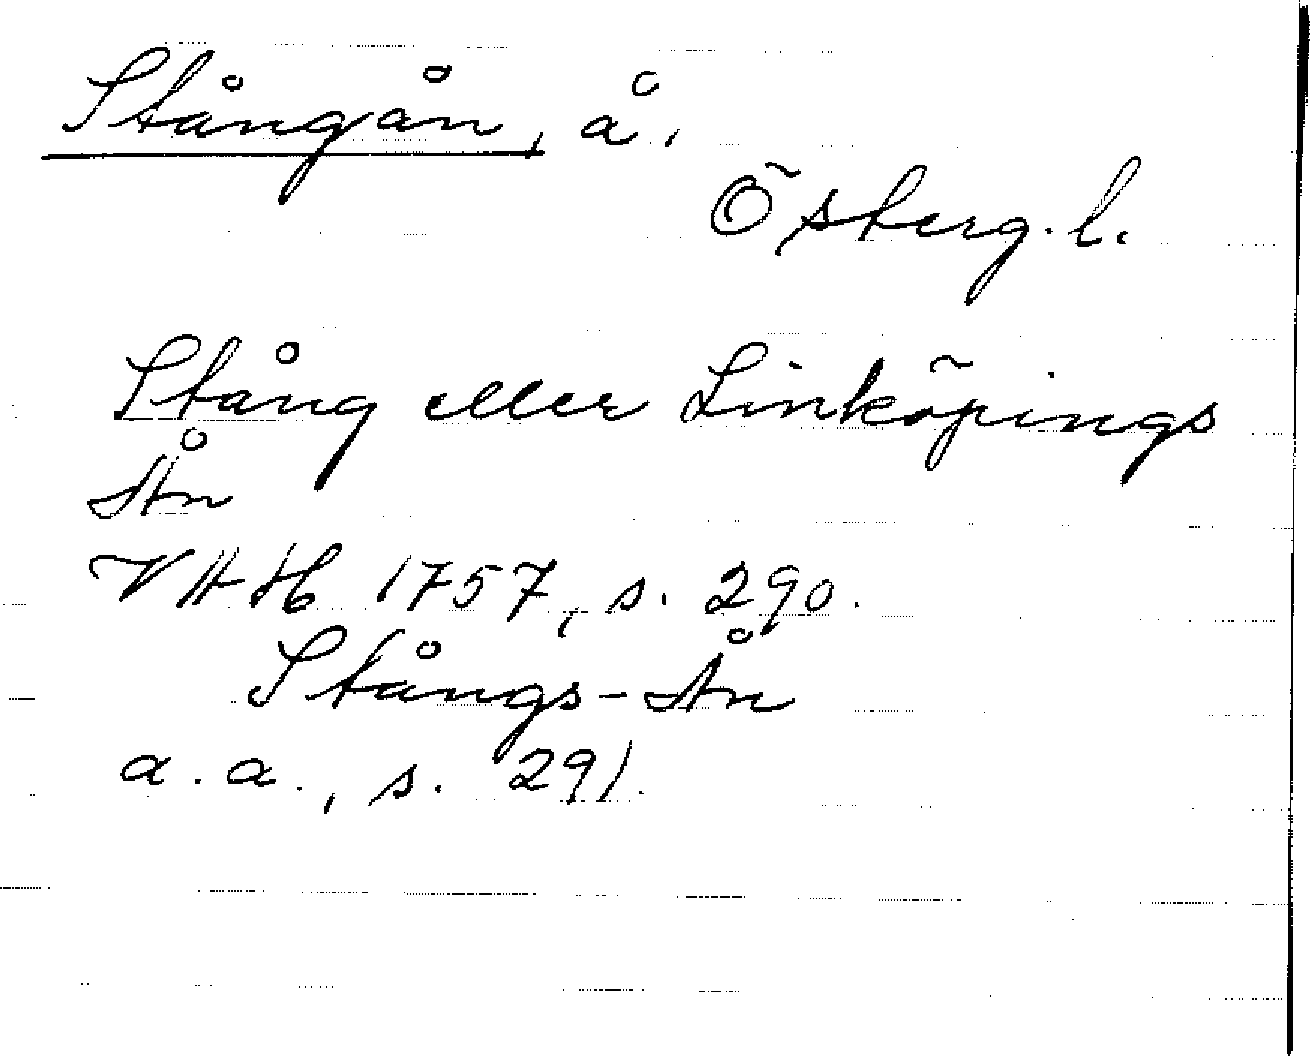 Stångån, å.
Österg. l.
Stång eller Linköpings
Ån
VAH 1757, s. 290.
Stångs-Ån
a. a., s. 291.